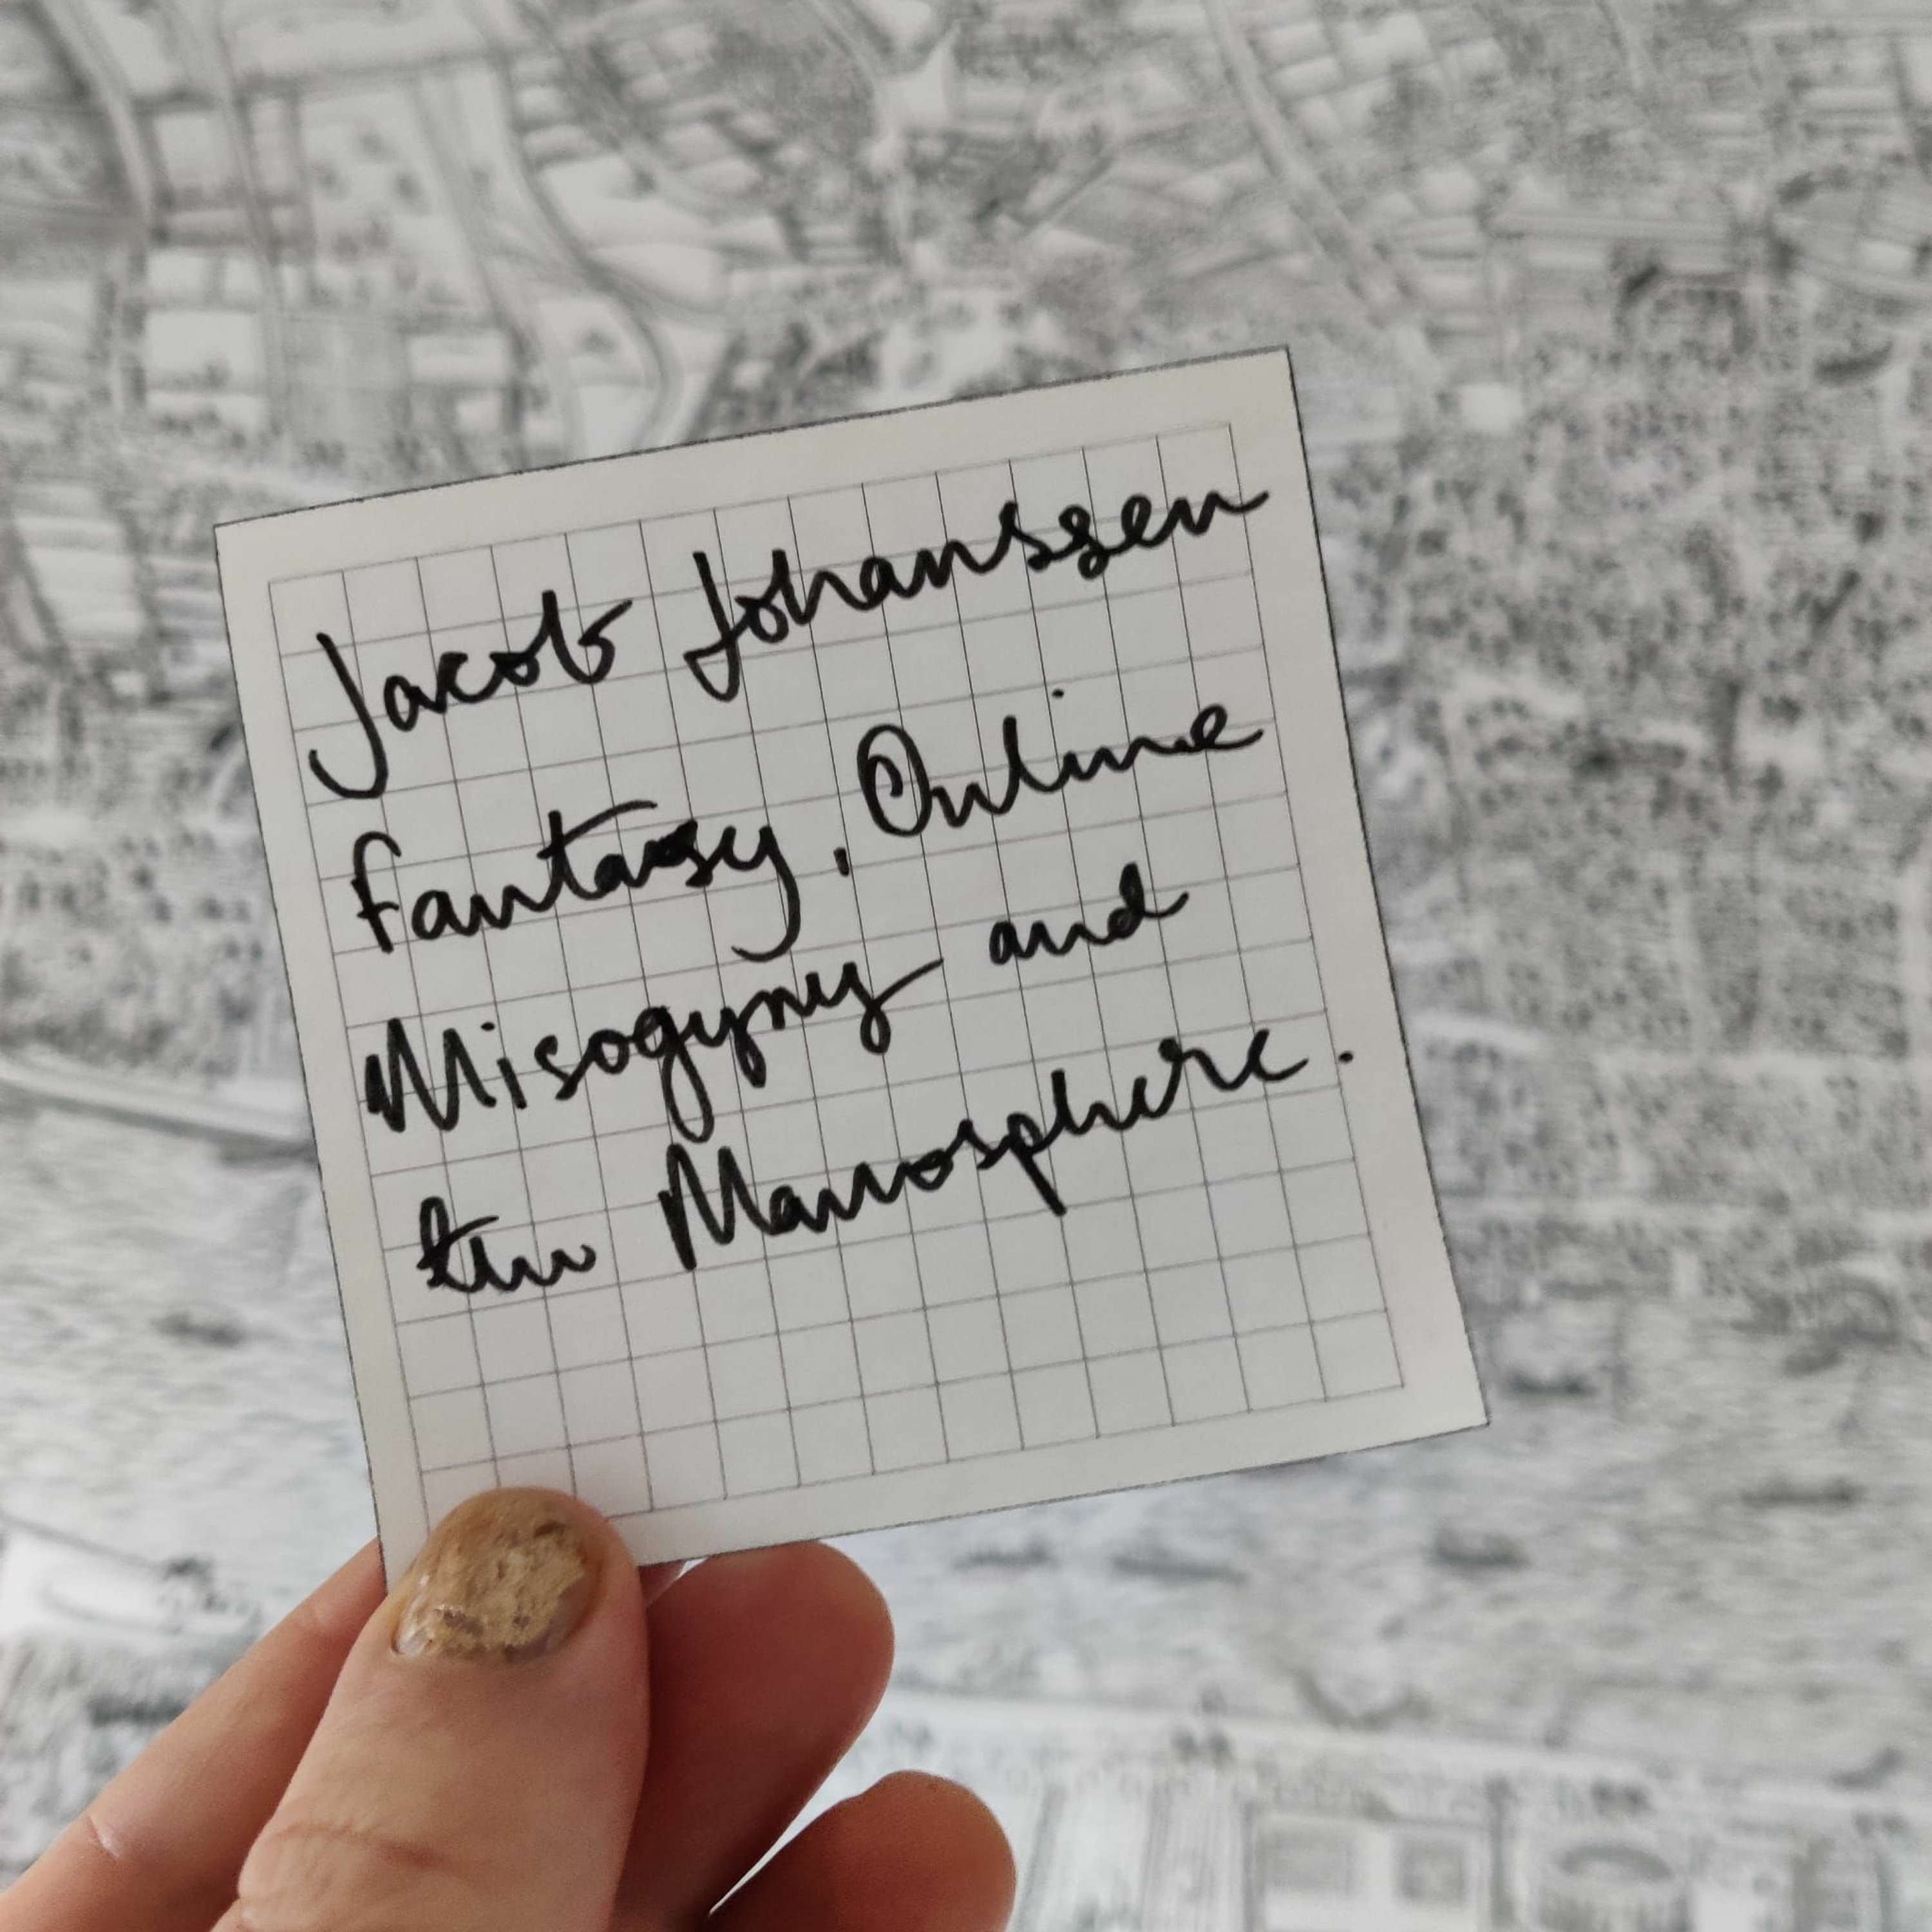 Jacob Johanssen
Fantasy, Online
Misogyny and
the Manosphere.